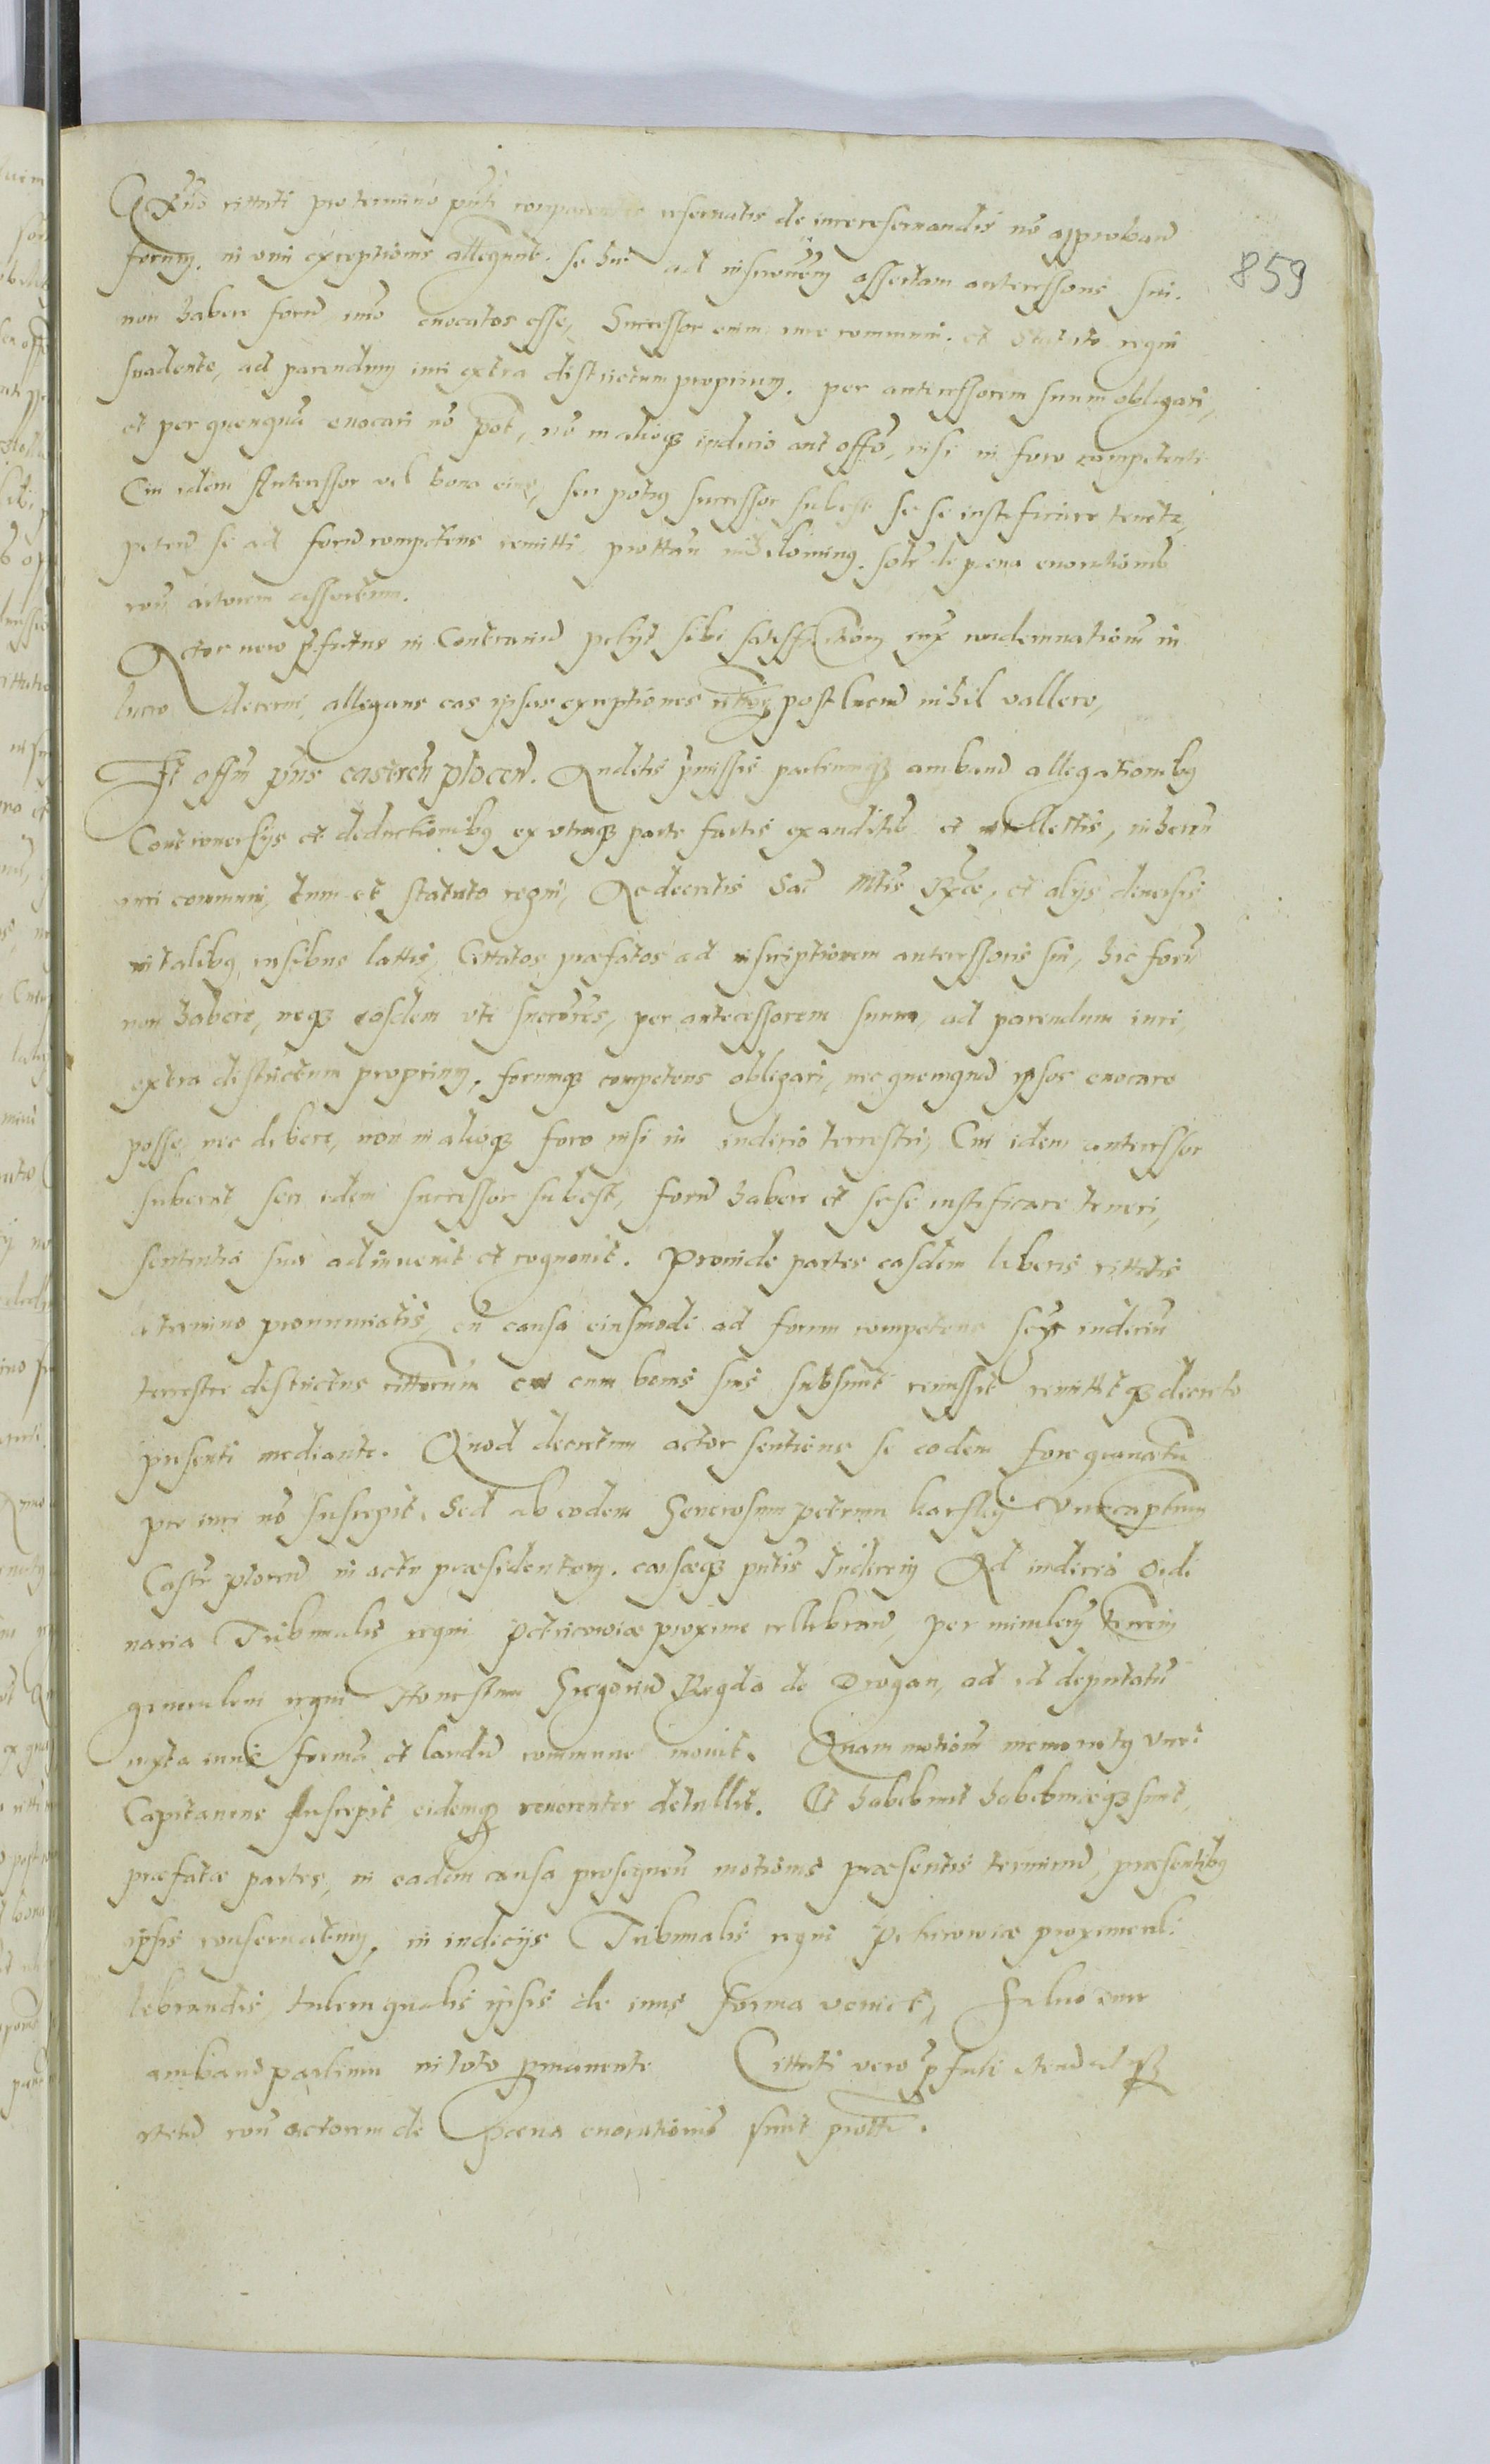 859
cittati pro termino pnti comparentes reservatis de iure reservandis no approband
forum, in vim exceptionis allegarunt. se hic ad inscriptionem assertam antecessoris sui.
non habere foru imo evocatos esse, Successor enim iure communi. et statuto regni
suadente, ad parendum iuri extra districtum proprium. per antecessorem suum obligari,
et per quenquam evocari no pot, no in alioq iudicio aut offo, nisi in foro competenti
Cui idem Antecessor vel bona eius, seu potius successor subest se se iustificare tenetr,
peten se ad foru competens remitti, prottan nihilominus. de pena evocationis
con actorem assertum.
Actor vero pfatus in Contrarium petyt sibi satisfactionem condemnationem in
lucro decerni, allegans eas ipsas exceptiones post lucru nihil vallere,
Et offm pns castren plocen. Auditis pmissis partiumq amban allegationibus
Controversys et deductionibus ex utraq parte factis exauditis et intellectis, inheren
iuri communi, tum et statuto regni, Ac decretis Sac Mtis Rgae, et alys diversis
in talibus casibus lattis, Cittatos praefatos ad inscriptionem antecessoris sui, hic foru
non habere, neq eosdem uti succres, per antecessorem suum, ad parendum iuri,
extra districtum proprium, forumq competens obligari, nec quemquam ipsos evocare
posse, nec debere, non in alioq foro nisi in iudicio terrestri, Cui idem antecessor
suberat seu idem successor subest, foru habere et sese iustificare teneri,
sententia sua adinvenit et cognovit. Proinde partes easdem liberis cittatis
a termino pronunciatis, causa eiusmodi ad forum competens iudicium
terrestre districtus cittorum cui cum bonis suis subsunt remissit remittitq decreto
presenti mediante. Quod decretum actor sentiens se eodem fore gravatum
pro iure no suscepit, Sed ab eodem Generosum petrum karsky vicecaptneum
Castr plocen in actu praesidentem. causaeq pntis Iudicem Ad iudicia ordi
naria Tribunalis regni Petricoviae proxime cellebran, per ministerialem
generalem regni Honestum Gregorium Regda de Drogan, ad id deputatum
iuxta iuris forma et laudu commune movit. Quam motionem memoratus vice
Capitaneus suscepit, eidemq reverenter detullit. Et habebunt habebuntq sunt,
praefatae partes, in eadem causa prosequen motionis praesentis terminum, praesentibus
ipsis conservatum, in iudicys Tribunalis regni Petricoviae proxime cel
lebrandis, talem qualis ipsis de iuris forma venict, Salvo iure
amban partium in toto pmanente Cittati vero pfati
con actorem de Poena evocationis sunt protti.